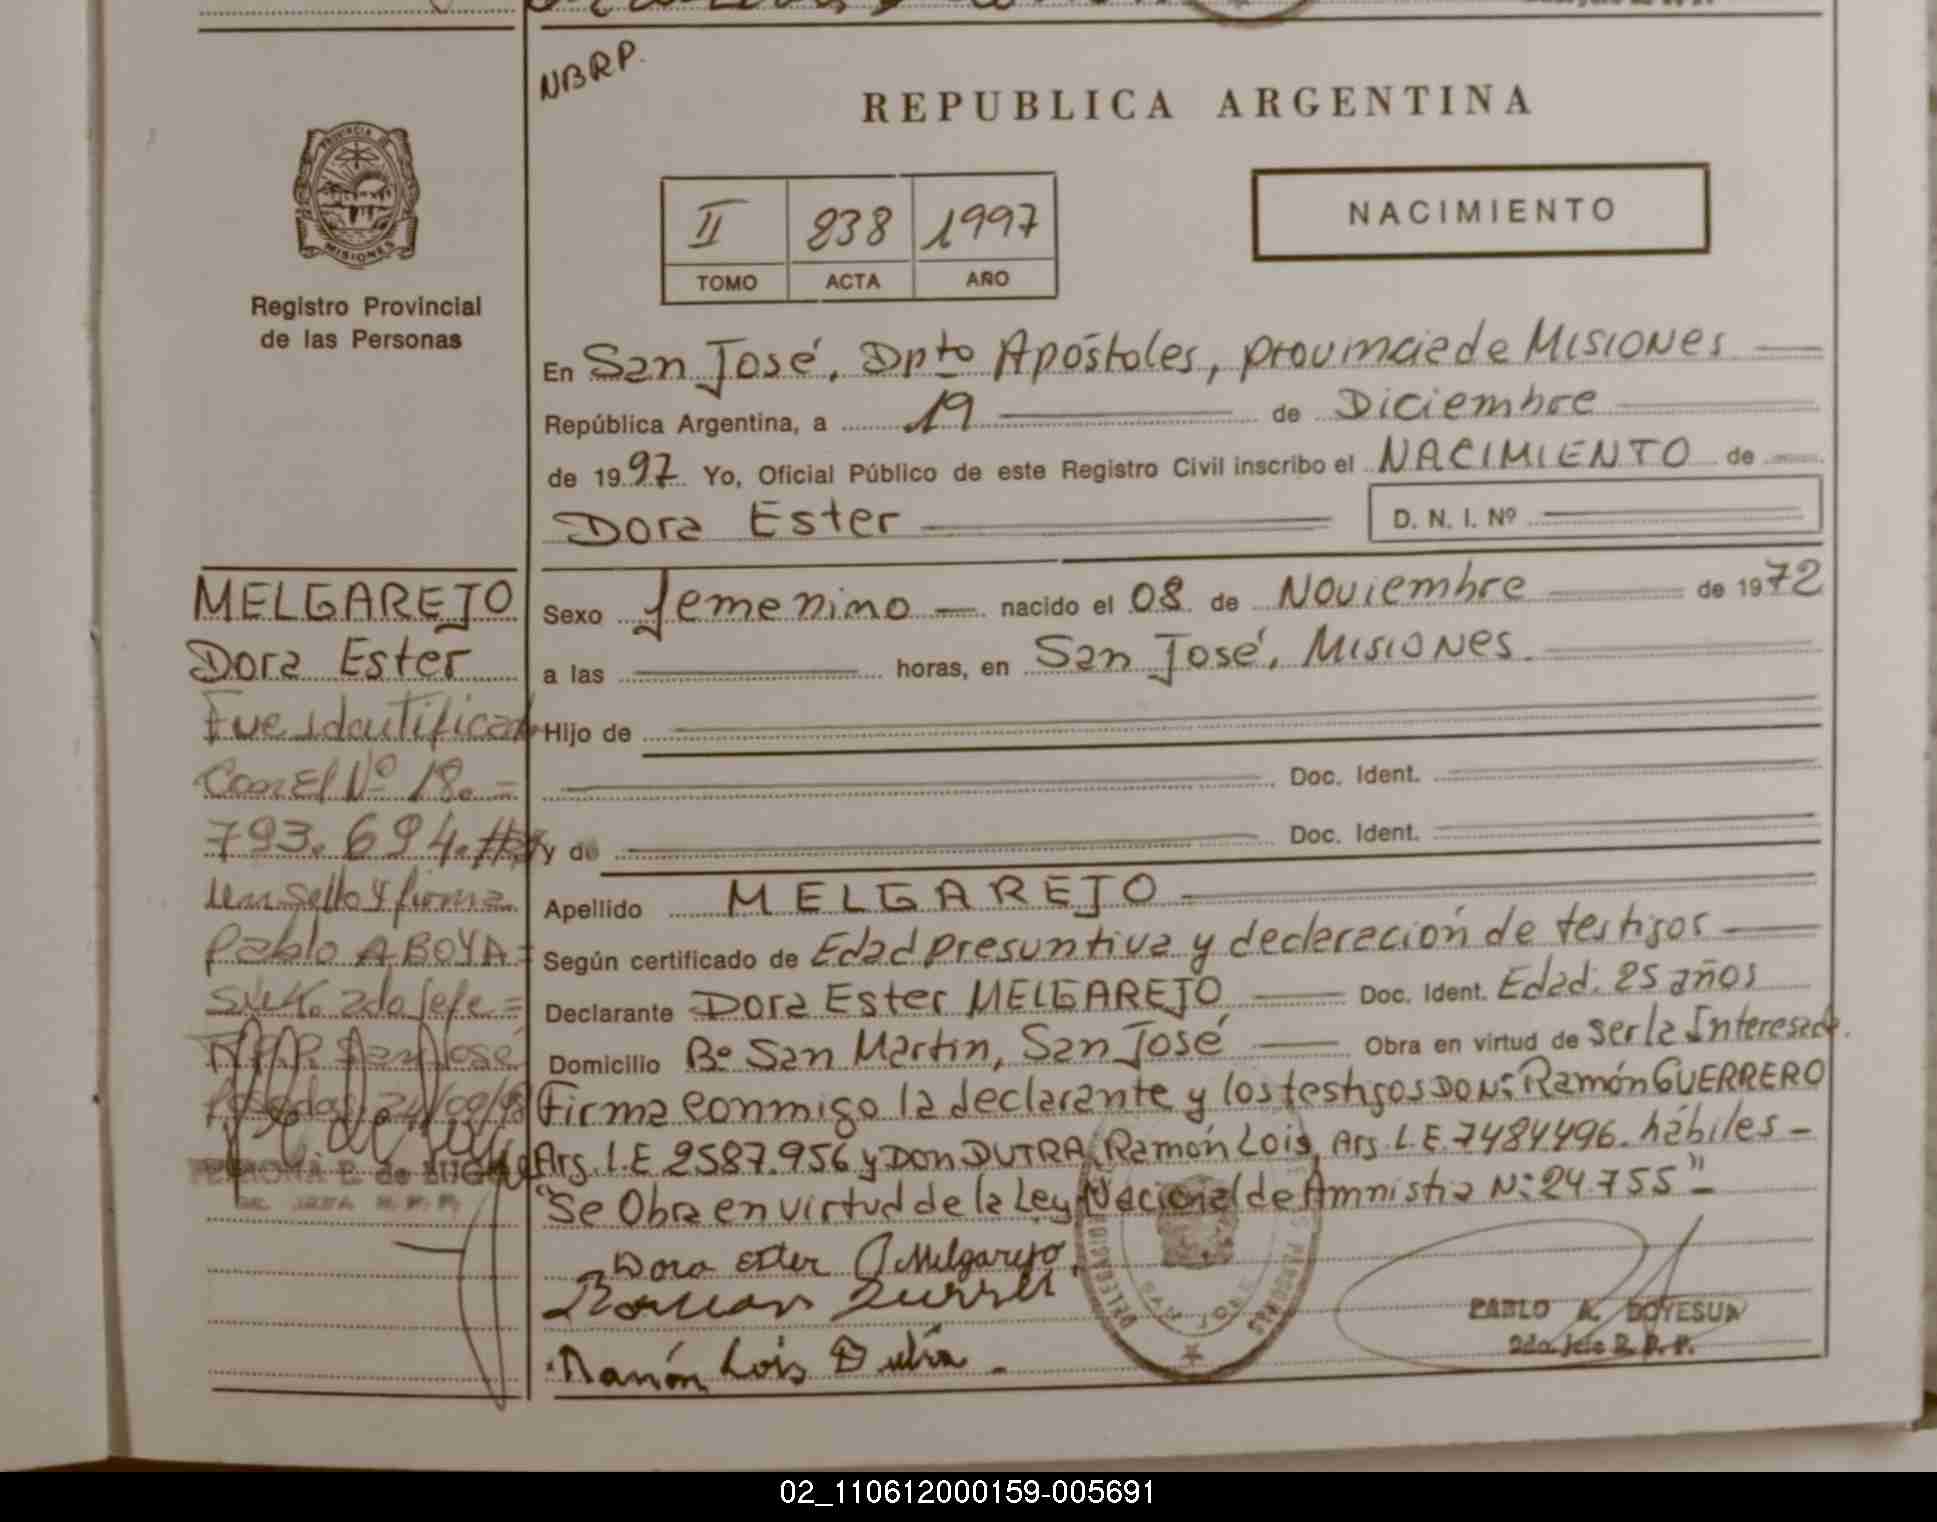 NBRP.
REPUBLICA ARGENTINA
PROVINCIA DE
MISIONES
Registro Provincial
de las Personas
II 238 1997
TOMO ACTA AÑO
NACIMIENTO
En San José, Dpto Apóstoles, provincia de Misiones
República Argentina, a 19 de Diciembre
de 1997 Yo, Oficial Público de este Registro Civil inscribo el NACIMIENTO de
Dora Ester D. N. I. Nº
MELGAREJO
Dora Ester
Fue identificada
Con El Nº 18. =
793.694.
un sello y firma
Pablo A BOYA =
2do Jefe =
R.P.P. San José
Posadas, 24/09/98
Sexo femenino nacido el 08 de Noviembre de 1972
a las horas, en San José, Misiones.
Hijo de
Doc. Ident.
y de Doc. Ident.
Apellido MELGAREJO
Según certificado de Edad presuntiva y declaración de testigos
Declarante Dora Ester MELGAREJO Doc. Ident. Edad: 25 años
Domicilio Bº San Martín, San José Obra en virtud de ser la Interesada.
Firma conmigo la declarante y los testigos DON: Ramón GUERRERO
Arg. L.E 2587.956 y DON DUTRA, Ramón Lois, Arg. L.E. 7484496. hábiles -
"Se Obra en virtud de la Ley Nacional de Amnistia N: 24.755"
Dora Ester Melgarejo
Ramón Lois Dutra
SAN JOSE
PABLO A. BOYESUK
2do. Jefe R. P. P.
02_110612000159-005691